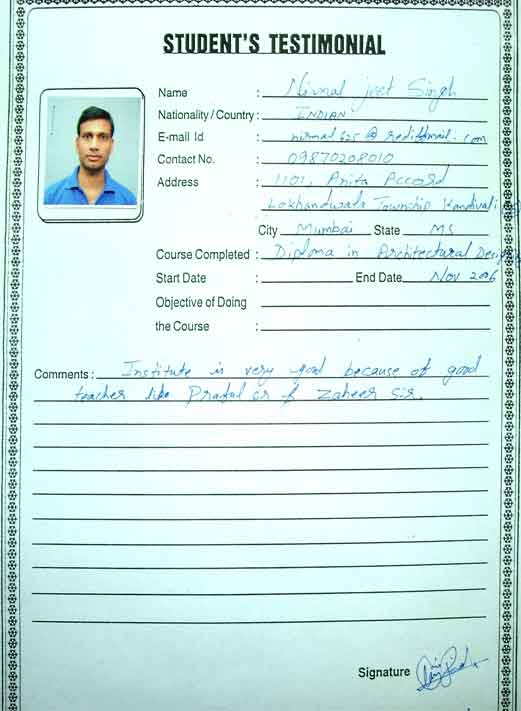 STUDENT'S TESTIMONIAL
Name : Nirmal jeet Singh
Nationality / Country : INDIAN
E-mail Id : nirmal625@rediffmail.com
Contact No. : 09870208010
Address : 1101, Anita Accord
Lokhandwala Township Kandivali
City Mumbai State MS
Course Completed : Diploma in Architectural Design
Start Date : End Date Nov 2006
Objective of Doing
the Course :
Comments : Institute is very good because of good
teacher like Praful sr & Zaheer Sir.
Signature